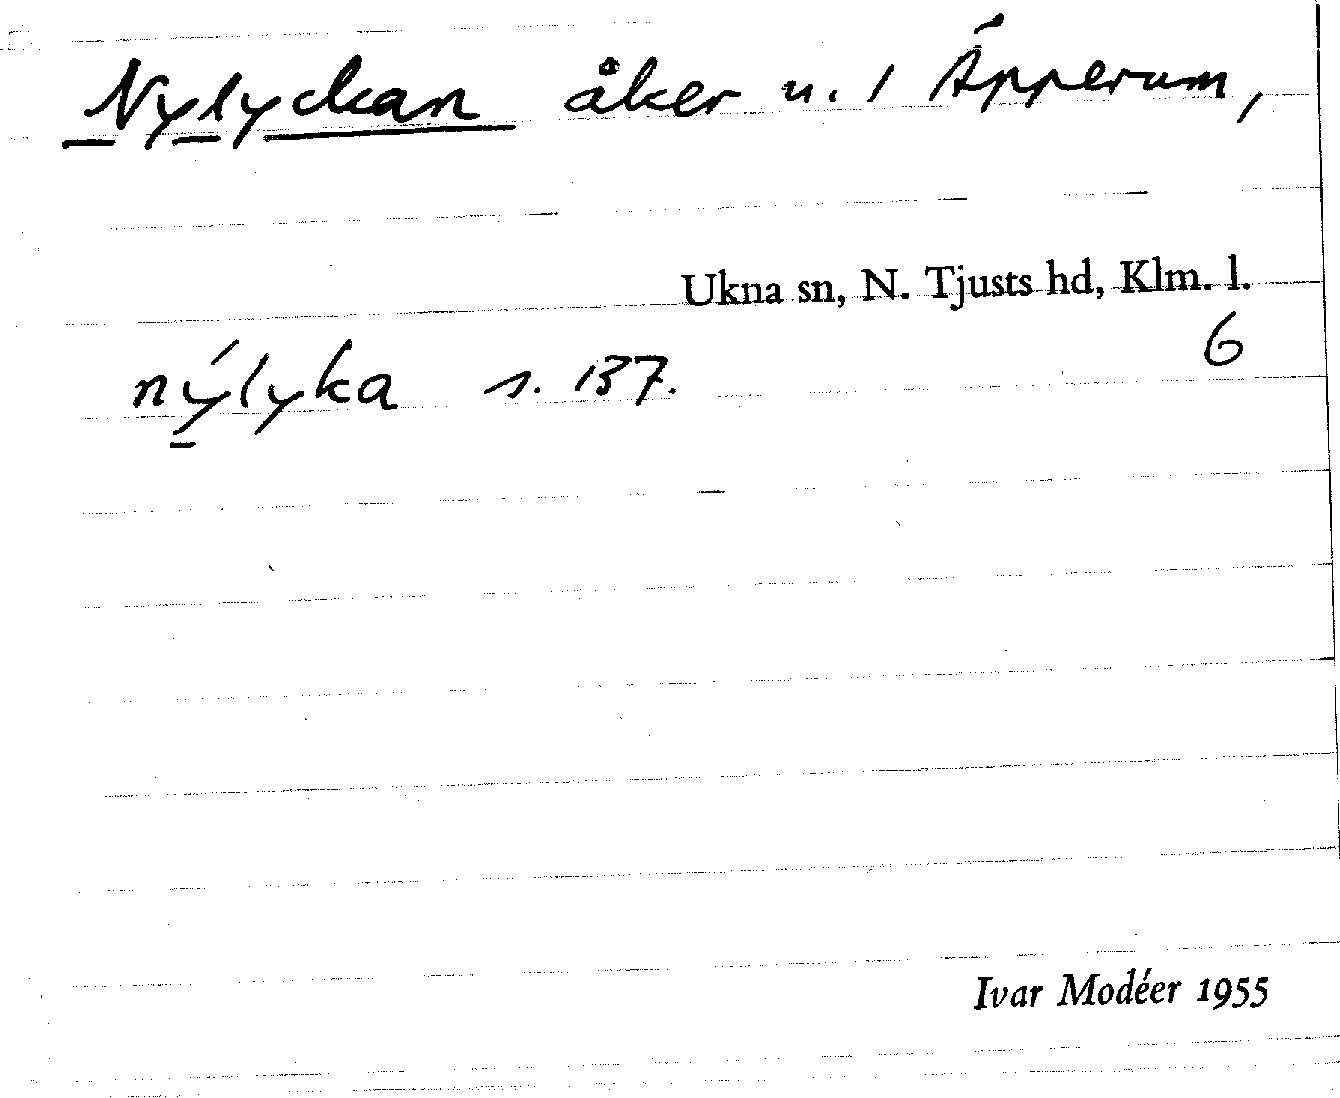 Nylyckan åker u. 1 Äpperum,
Ukna sn, N. Tjusts hd, Klm. l.
6
nýlyka s. 137.
Ivar Modéer 1955